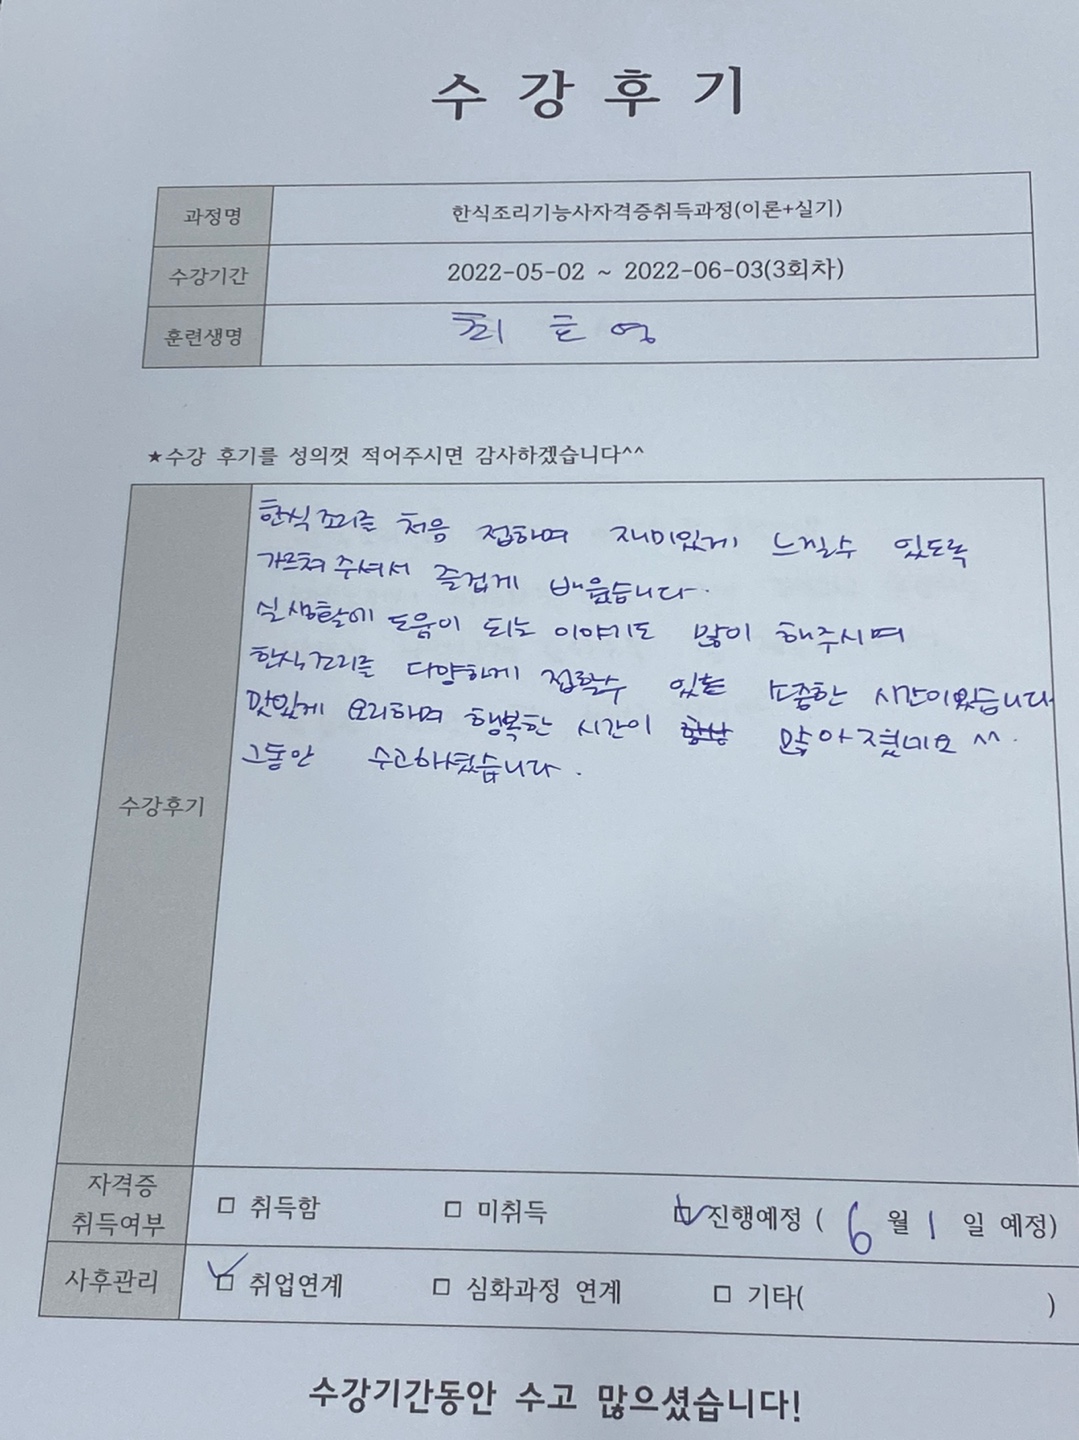 수 강 후 기
과정명 한식조리기능사자격증취득과정(이론+실기)
수강기간 2022-05-02 ~ 2022-06-03(3회차)
훈련생명 최 호 영
★수강 후기를 성의껏 적어주시면 감사하겠습니다^^
한식조리를 처음 접하며 재미있게 느낄수 있도록
가르쳐 주셔서 즐겁게 배웠습니다.
실생활에 도움이 되는 이야기도 많이 해주시며
한식조리를 다양하게 접할수 있는 소중한 시간이였습니다
맛있게 요리하며 행복한 시간이 많아졌네요 ^^.
그동안 수고하셨습니다.
수강후기
자격증
취득여부 □ 취득함 □ 미취득 ☑ 진행예정 ( 6 월 1 일 예정)
사후관리 ☑ 취업연계 □ 심화과정 연계 □ 기타( )
수강기간동안 수고 많으셨습니다!